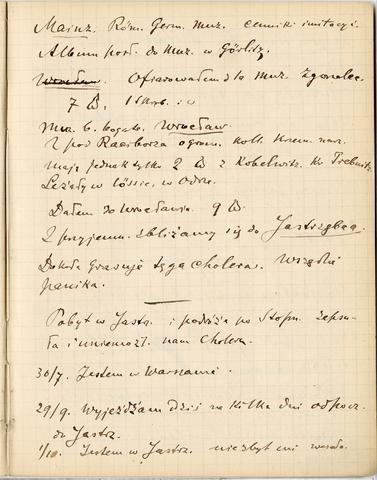 Mainz. Röm. Germ. muz. cenniki imitacyi.
Album posł. do muz. w Görlitz.
Wrocław. Ofiarowałem do muz. Zgorzelec
7 B, 1 skrob.
muz. b. bogate. Wrocław
Z pod Raciborza ogrom. koll. krem. narz.
mają jednak tylko 2 B z Kobelwitz, Kr. Trebnitz.
Leżały w lössie, w Odrze.
Dałem do Wrocławia 9 B.
Z przyjemn. zbliżamy się do Jastrzębca
Dokoła grasuje tęga cholera. Wszędzie
panika.
Pobyt w Jastrz. i podróże po Stopn. zepsu-
ła i uniemożl. nam Cholera.
30/7. Jestem w Warszawie.
29/9. Wyjeżdżam dziś na kilka dni odpocz.
do Jastrz.
1/10. Jestem w Jastrz. niezbyt mi wesoło.